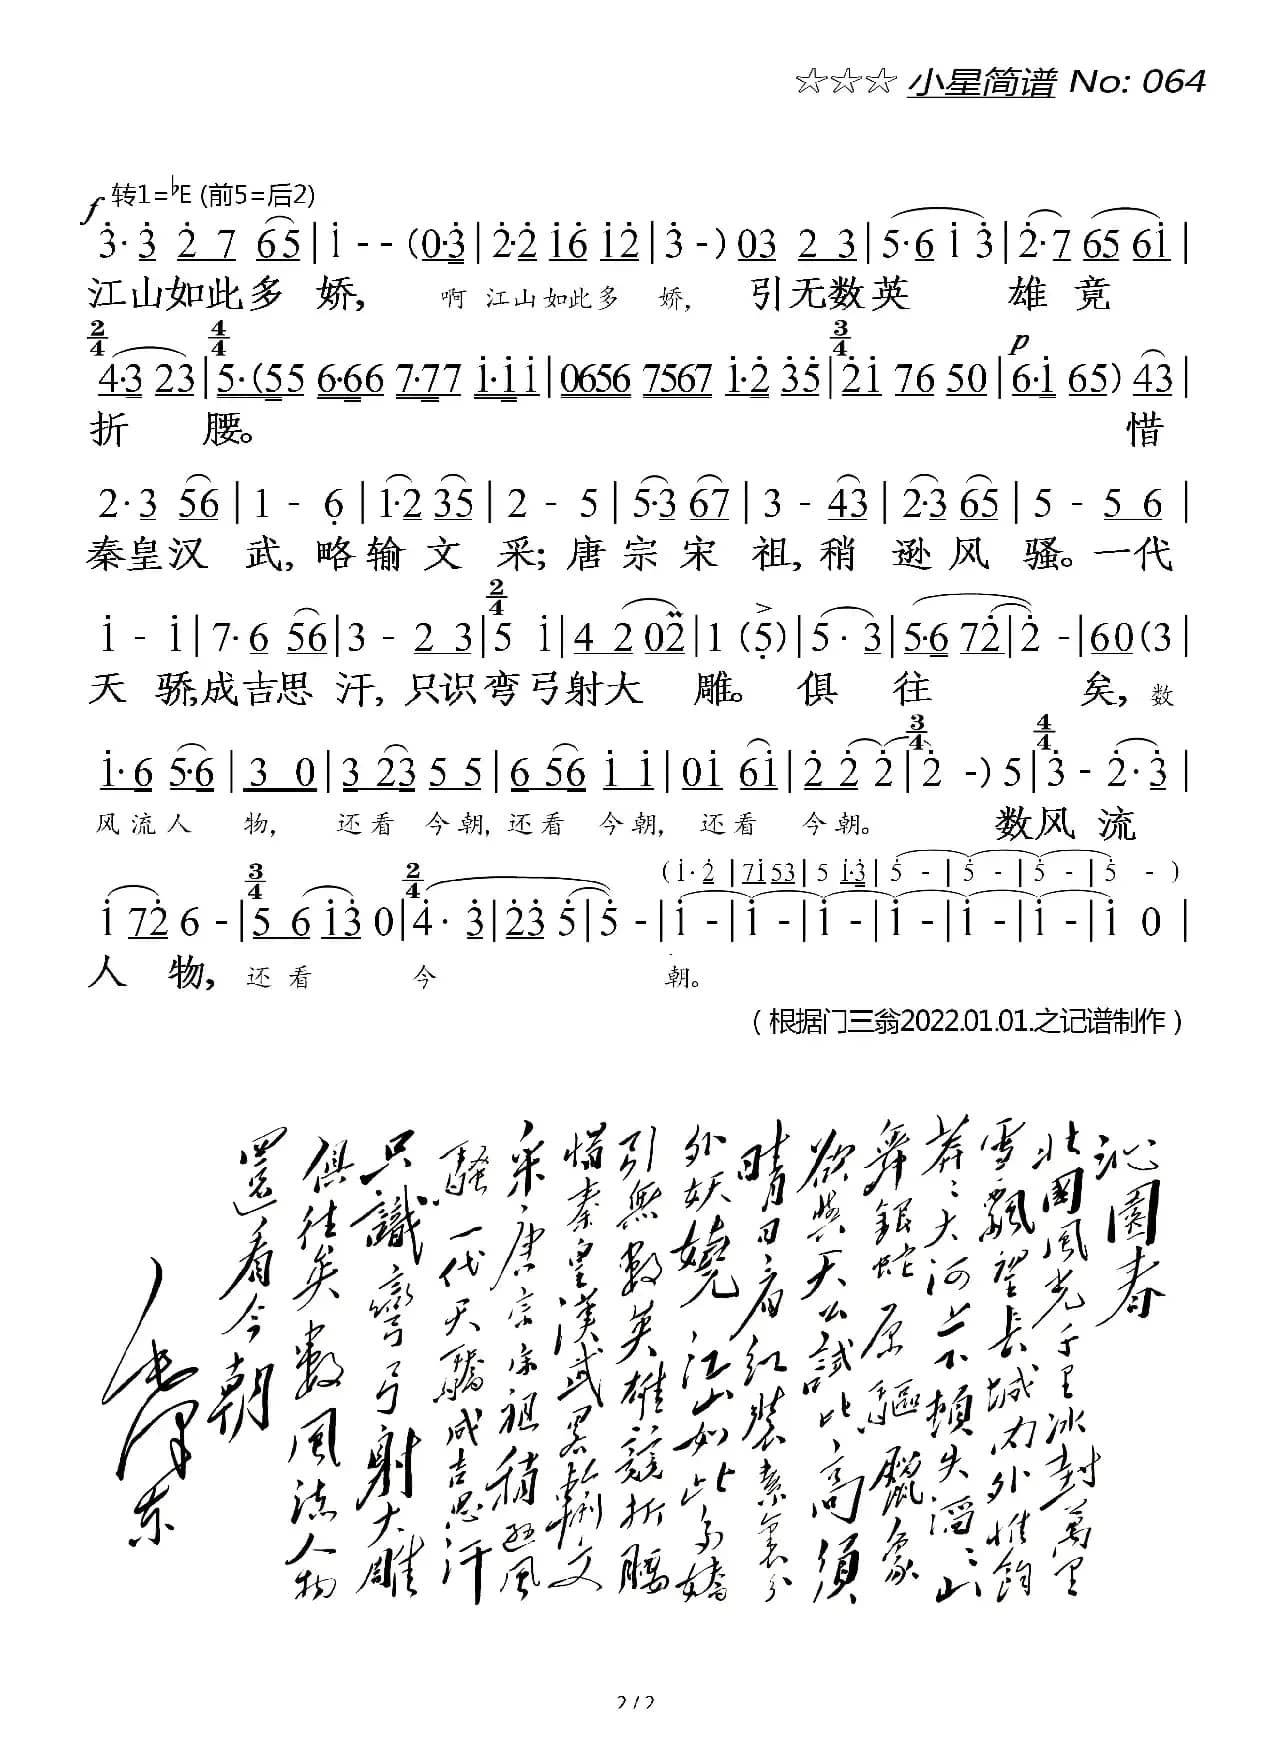 ☆☆☆ 小星简谱 No: 064
f 转1=♭E (前5=后2)
3̇· 3̇ 2̇ 7 6 5 | 1̇ - - (0·3̇ | 2̇·2̇ 1̇6 1̇2̇ | 3̇ -) 03 2 3 | 5·6 1̇ 3̇ | 2̇·7 65 61̇ |
江山如此多 娇, 啊 江山如此多 娇, 引无数英 雄 竟
2/4 4/4 3/4 p
4·3 23 | 5·(55 6·66 7·77 1̇·1̇1̇ | 0656 7567 1̇·2̇ 3̇5 | 2̇1̇ 76 50 | 6·1̇ 65) 43 |
折 腰。 惜
2·3 56 | 1 - 6̣ | 1·2 35 | 2 - 5 | 5·3 67 | 3 - 43 | 2·3 65 | 5 - 5 6 |
秦皇汉 武, 略 输 文 采; 唐 宗 宋 祖, 稍 逊 风 骚。一代
2/4
1̇ - 1̇ | 7·6 56 | 3 - 2 3 | 5 1̇ | 4 2 02̇ | 1 (5̣) | 5 · 3 | 5·6 72̇ | 2̇ - | 60 (3 |
天 骄,成吉思 汗, 只识弯弓射大 雕。 俱 往 矣, 数
3/4 4/4
1̇·6 5·6 | 3 0 | 3 23 5 5 | 6 56 1̇ 1̇ | 01̇ 61̇ | 2̇ 2̇ 2̇ | 2̇ -) 5 | 3̇ - 2̇·3̇ |
风流人 物, 还看 今朝, 还看 今朝, 还看 今朝。 数风 流
(1̇·2̇ | 71̇53 | 5 1̇·3̇ | 5̇ - | 5̇ - | 5̇ - | 5̇ - )
3/4 2/4
1̇ 72̇ 6 - | 5 6 1̇3̇ 0 | 4̇· 3̇ | 2̇3̇ 5̇ | 5̇ - | 1̇ - | 1̇ - | 1̇ - | 1̇ - | 1̇ - | 1̇ - | 1̇ 0 |
人 物, 还 看 今 朝。
(根据门三翁2022.01.01.之记谱制作)
沁園春
北國風光千里冰封萬里
雪飄望長城內外惟餘
莽莽大河上下頓失滔滔山
舞銀蛇原驅臘象
欲與天公試比高須
晴日看紅裝素裹分
外妖嬈江山如此多嬌
引無數英雄競折腰
惜秦皇漢武略輸文
采唐宗宋祖稍遜風
騷一代天驕成吉思汗
只識彎弓射大雕
俱往矣數風流人物
還看今朝
毛澤东
2 / 2